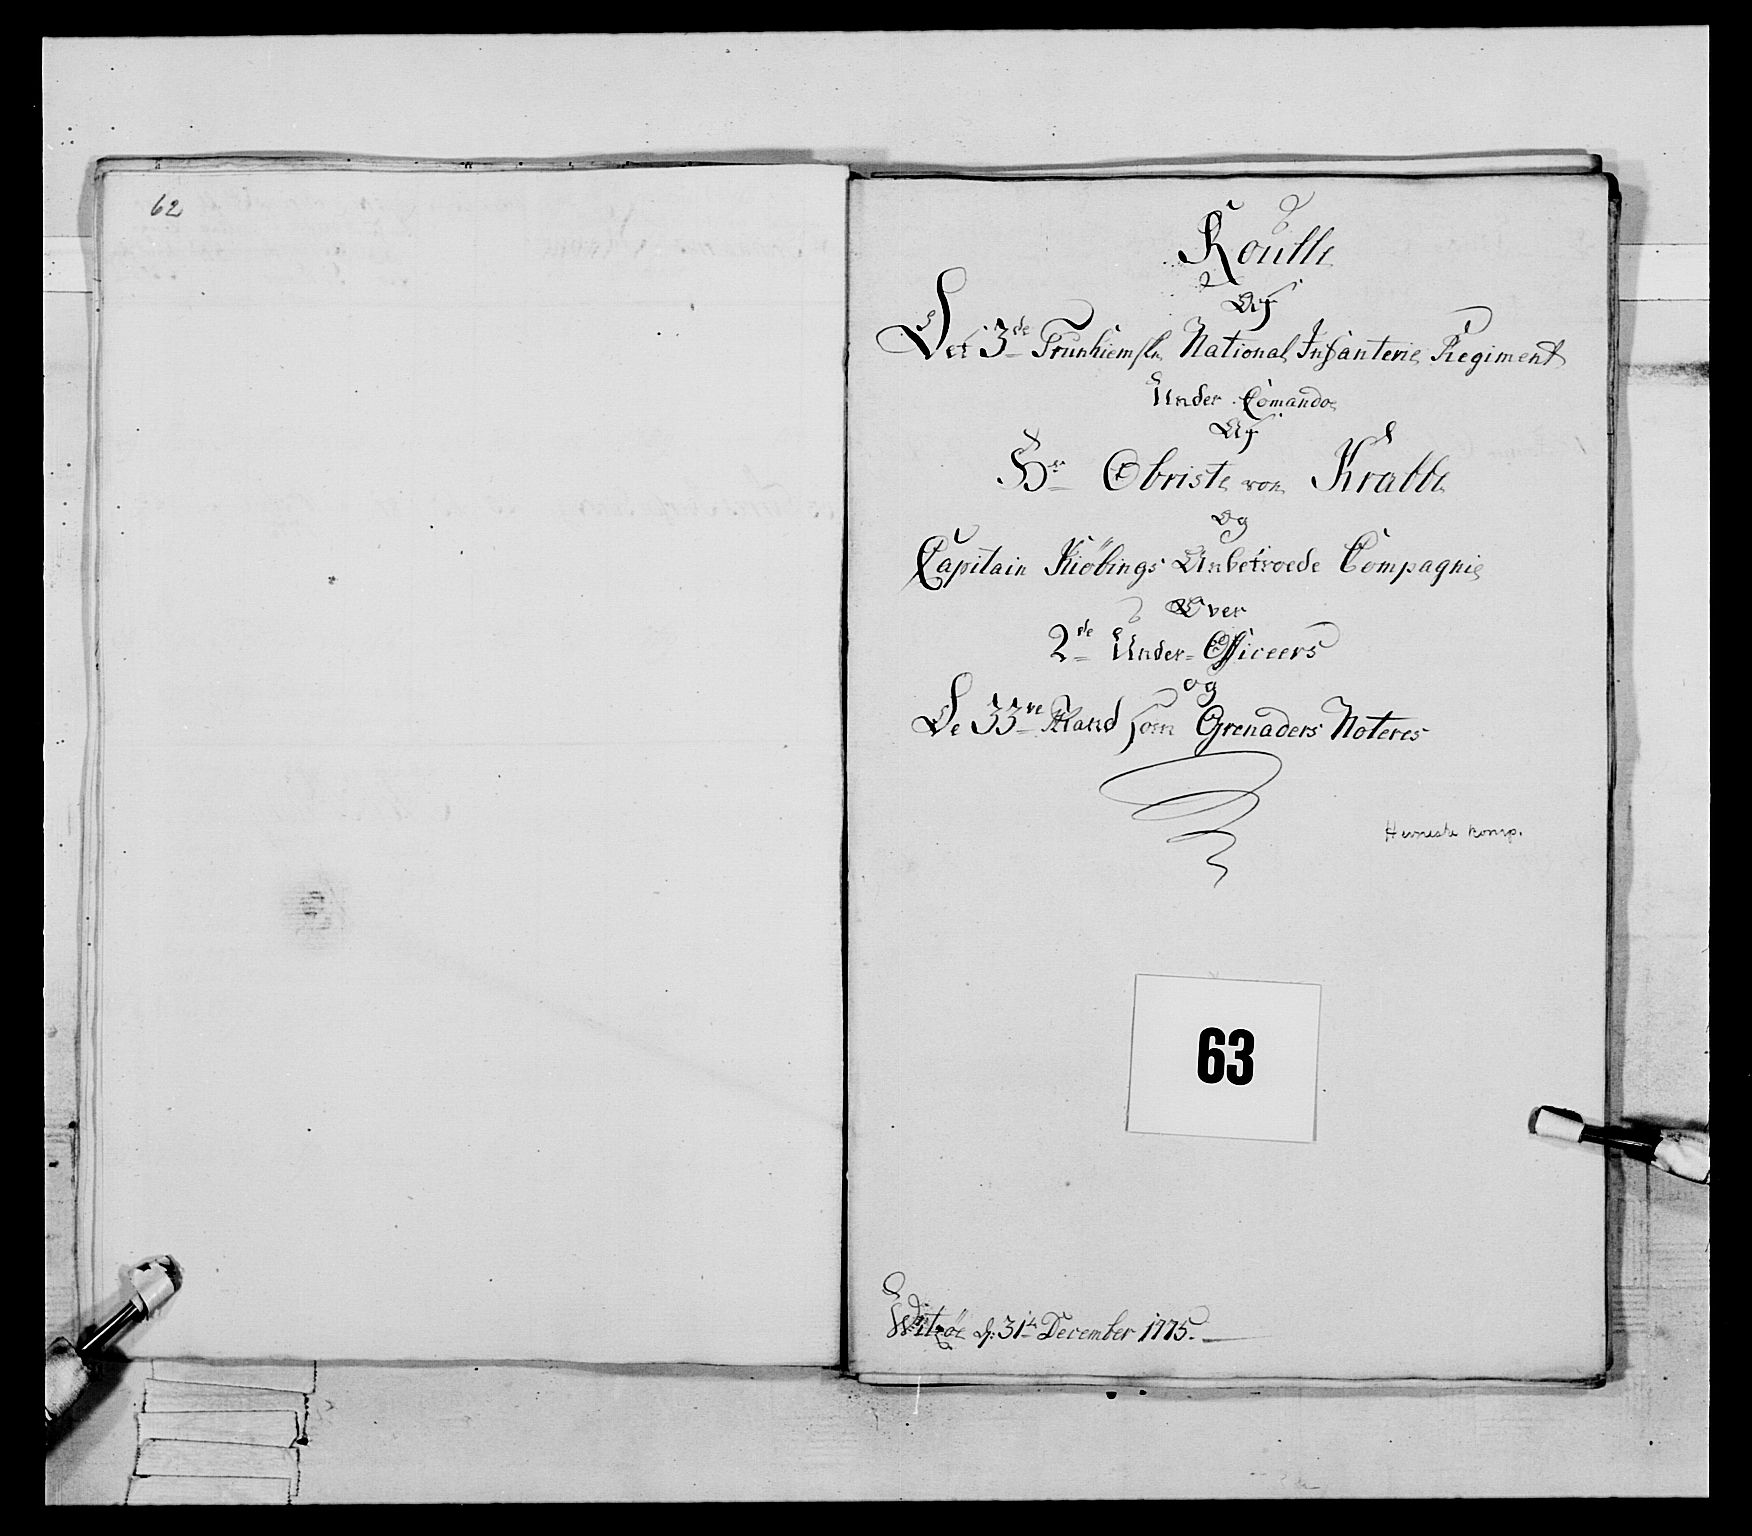 62
Roulle
Af
Det 3de Trunhiemske National Infanterie Regiment
Under Comando
Af
Hr Obriste von Krabbe
Og
Capitain Kiöbings Anbetroede Compagnie
Over
2de Under-Officeers
og
De 33re Mand som Grenaders Noteres
Hevneske komp.
63
d: 31te December 1775.